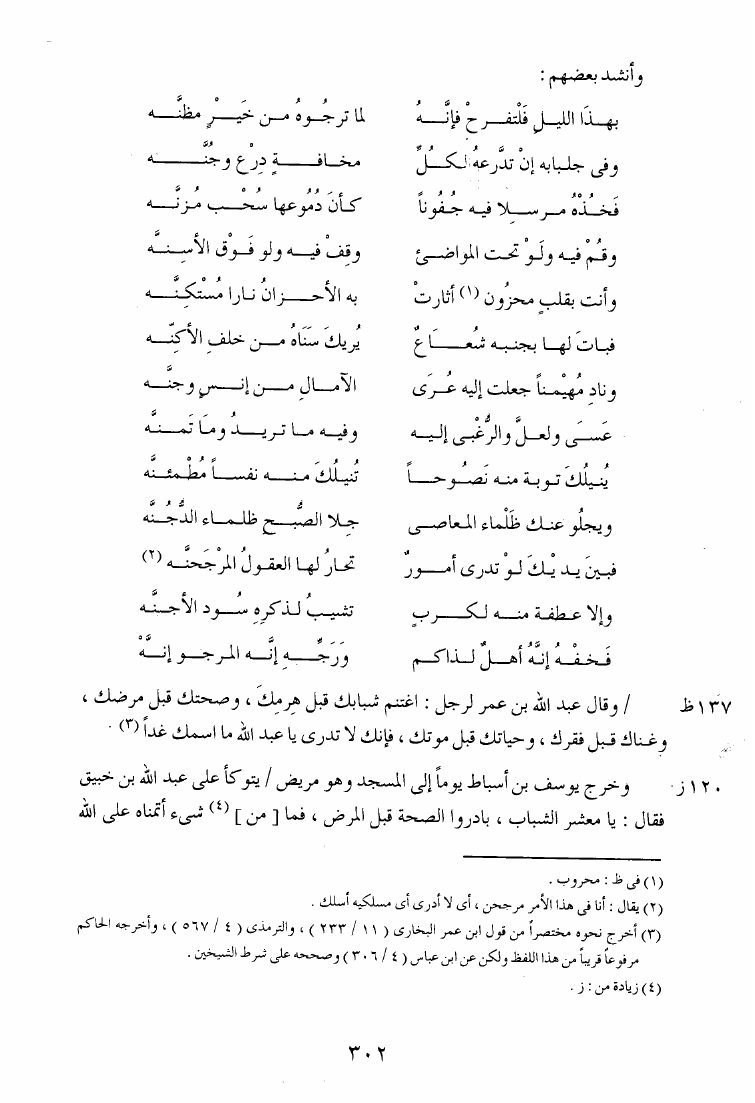 وأنشد بعضهم :
بهـذَا الليـلِ فَلْتفـرحْ فإنَّـهُ لما ترجُـوهُ مـن خَيـرٍ مظنَّـه
وفى جلبابه إنْ تدَّرعهُ لكـلِّ مخـافـةٍ دِرْع وجُنَّـه
فَخذْهُ مرسـلا فيـه جُفُوناً كـأنَ دُمُوعها سُحْـب مُزنَـه
وقُمْ فيه ولَوْ تحت المواضـئ وقِفْ فيـه ولو فَـوْق الأسِنـَّه
وأنت بقلبِ محزُون (١) أثارتْ به الأحـزانُ نـارا مُسْتكِنَّـه
فبـاتَ لهـا بجنبـه شُعـاعٌ يُريكَ سَنَاهُ مـن خلفِ الأكنّـه
ونادِ مهُيْمـناً جعلت إليه عُـرَى الآمـال مـن إنـسٍ وجنَّـه
عَسَـى ولعلَّ والرُّغبْـى إليـه وفيـه مـا تريـدُ ومَـا تَمنَّـه
يُنيلُكَ تـوبـة منـه نَصُوحـاً تُنيلُكَ منـه نفسـاً مُطْمئنَّه
ويجلُو عنـك ظَلْماء المعاصـى جـلا الصُّبـح ظلمـاء الدُّجُنَّه
فبينَ يديْـكَ لـوْ تدرى أمـورٌ تحـارُ لهـا العقـولُ المرْجَحنَّـه (٢)
وإلا عـطفـة منـه لكـربٍ تشيبُ لـذكرهِ سُـود الأجنَّـه
فَخفْـهُ إنَّهُ أهـلٌ لـذاكـم ورَجِّـهِ إنَّـه المرجـو إنـَّهْ
١٣٧ظ / وقال عبد الله بن عمر لرجل : اغتنم شبابك قبل هرمكَ ، وصحتك قبل مرضك ،
وغناك قبل فقرك ، وحياتك قبل موتك ، فإنك لا تدرى يا عبد الله ما اسمك غداً (٣) .
١٢٠ز وخرج يوسف بن أسباط يوماً إلى المسجد وهو مريض / يتوكأ على عبد الله بن خبيق
فقال : يا معشر الشباب ، بادروا الصحة قبل المرض ، فما [ من ] (٤) شىء أتمناه على الله
(١) فى ظ : محروب .
(٢) يقال : أنا فى هذا الأمر مرجحن ، أى لا أدرى أى مسلكيه أسلك .
(٣) أخرج نحوه مختصراً من قول ابن عمر البخارى ( ١١ / ٢٣٣ ) ، والترمذى ( ٤ / ٥٦٧ ) ، وأخرجه الحاكم
مرفوعاً قريباً من هذا اللفظ ولكن عن ابن عباس ( ٤ / ٣٠٦ ) وصححه على شرط الشيخين .
(٤) زيادة من : ز .
٣٠٢